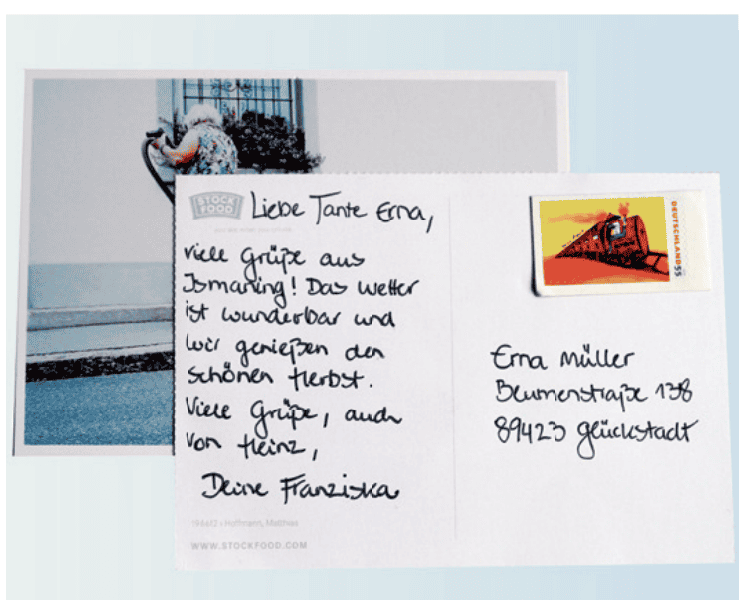 STOCK
FOOD
Liebe Tante Erna,
viele Grüße aus
Ismaning! Das Wetter
ist wunderbar und
wir genießen den
schönen Herbst.
Viele Grüße, auch
von Heinz,
Deine Franziska
194612 › Hoffmann, Matthias
WWW.STOCKFOOD.COM
DEUTSCHLAND 55
Erna Müller
Blumenstraße 138
89423 Glückstadt